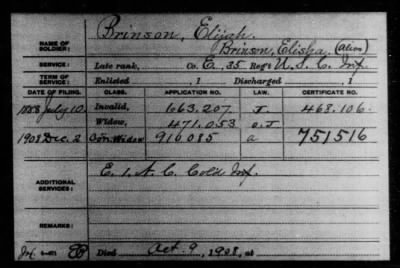 NAME OF SOLDIER: Brinson, Elijah.
Brinson, Elisha (Alias)
SERVICE: Late rank, Co. E, 35 Reg't U.S.C. Inf.
TERM OF SERVICE: Enlisted , 1 Discharged , 1
DATE OF FILING. CLASS. APPLICATION NO. LAW. CERTIFICATE NO.
1888 July 10. Invalid, 663.207 J 468.106.
Widow, 471.053 O.J
1908 Dec. 2 Con Widow 916085 a 751516
ADDITIONAL SERVICES: E. 1 N.C. Cold Inf.
REMARKS:
Died Oct. 9, 1908, at